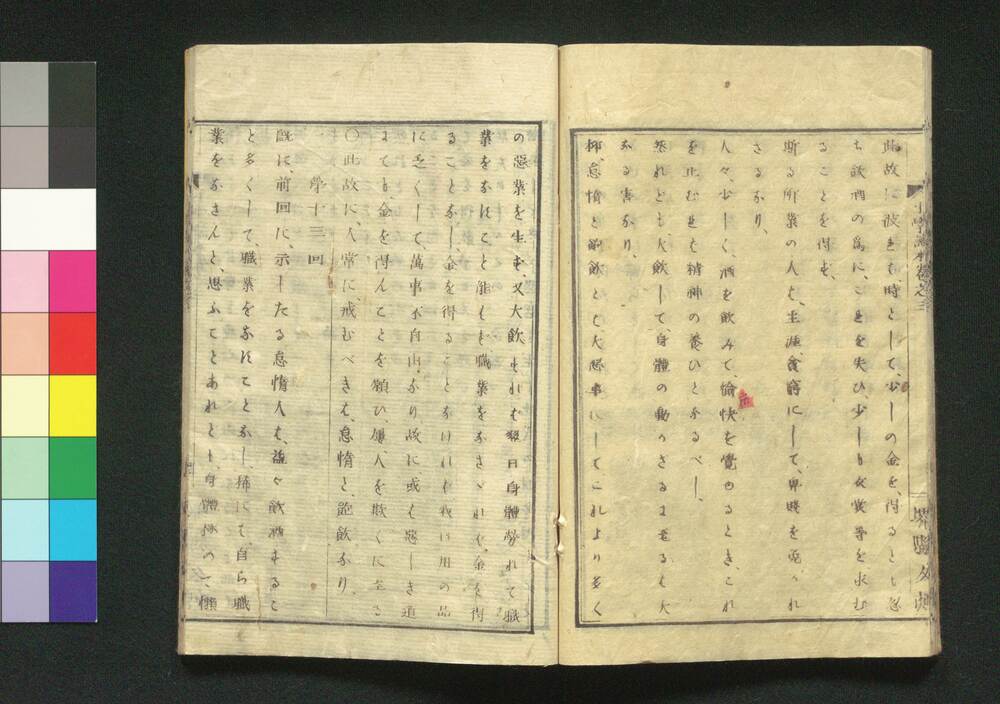 此故に彼をて時として、少しの金を、得るとも忽
ち飲酒の為に、これを失ひ、少しも衣裳等を、求む
ることを得ず、
斯る所業の人も、生涯、貧窮にして、卑賤を免かれ
さるなり、
人々、少しく、酒を飲みて、愉快を覚ゆるとき、これ
を止むれも精神の養ひとなるべし、
然れども大飲して、身體の動かさるまるも大
なる害なり、
抑、怠惰と飽飲とも、大悪事にしてこれより多く
の惡業を生ず、又大飲もれむ翌日身體勞れて職
業をなすこと能も職業をなさゞれ、金を得
ることなし、金を得ることなけれも我日用の品
に乏くして、萬事不自由なり故に、或も惡しき道
まても、金を得んことを願ひ、屢、人を欺くに至る
〇此故に、人常に戒むべきも、怠惰と、飽飲なり、
第十三回
既に、前回に、示したる怠惰人も、益々飲酒する こ
と多くして、職業をなすことなし、稀にて、自ら職
業をなさんと、思ふことあれとも、身體極めて懶